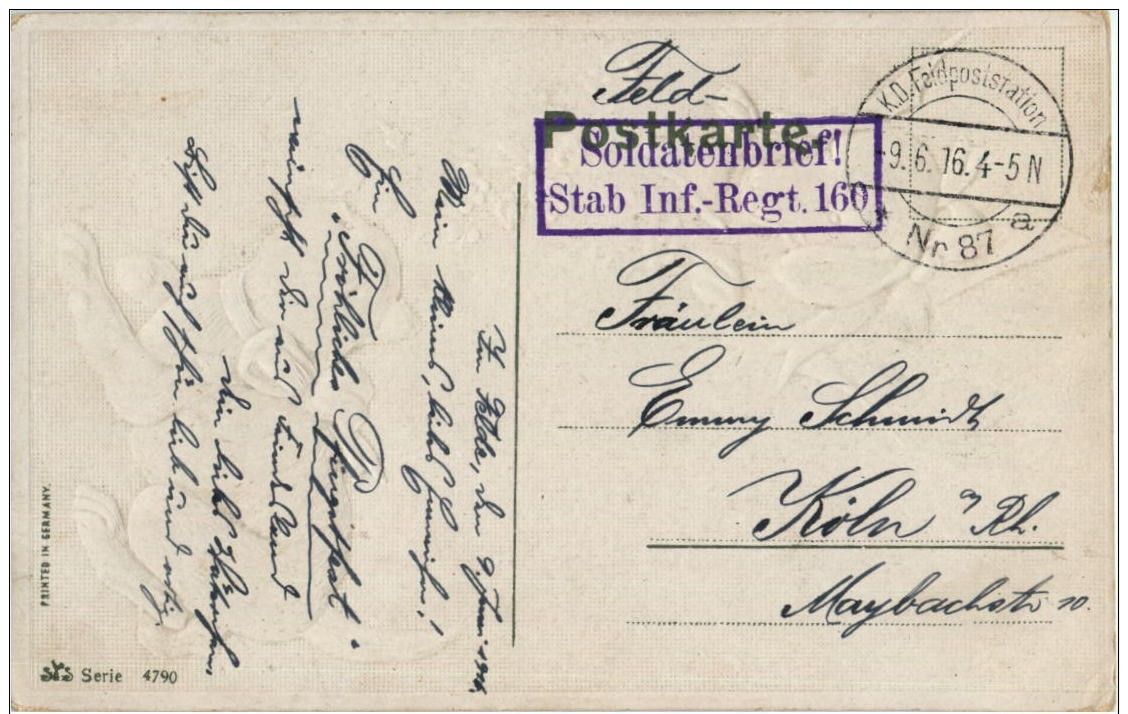 Feld-
Postkarte.
Soldatenbrief!
Stab Inf.-Regt. 160
K.D. Feldpoststation
-9.6.16. 4-5 N
* Nr 87 a
Fräulein
Emmy Schmidt
Köln a/ Rh.
Maybachstr 10.
Im Felde, den 9. Juni 1916.
Mein kleines, liebes
Ein
"Fröhliches Pfingstfest"
wünscht dir aus Feindesland
dein liebes
lieb und
PRINTED IN GERMANY.
Serie 4790